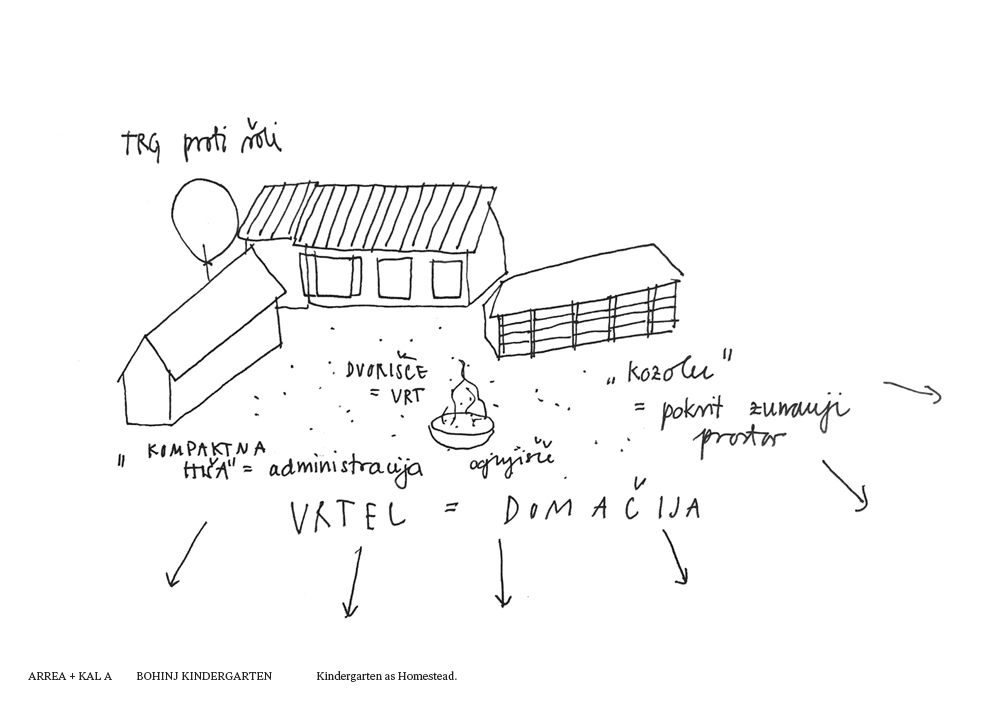 TRG proti šoli
DVORIŠČE
= VRT
„KOZOLEC"
= pokrit zunanji
prostor
„KOMPAKTNA
HIŠA" = administracija
ognjišče
VRTEC = DOMAČIJA
ARREA + KAL A BOHINJ KINDERGARTEN Kindergarten as Homestead.